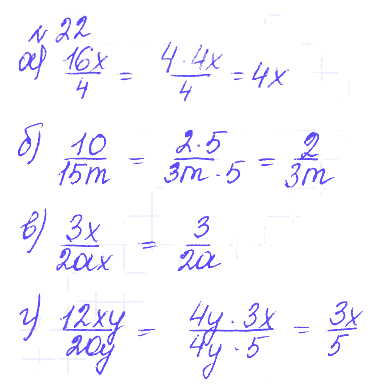 № 22
а) 16x/4 = 4·4x/4 = 4x
б) 10/15m = 2·5/3m·5 = 2/3m
в) 3x/2ax = 3/2a
г) 12xy/20y = 4y·3x/4y·5 = 3x/5